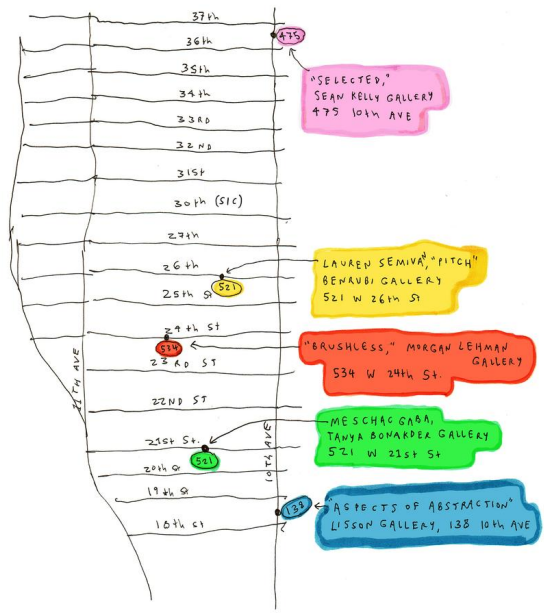 37th
36th
475
35th
34th
33RD
32ND
31st
30th (SIC)
27th
26th
521
25th St
24th St
534
23RD ST
22ND ST
21st St.
521
20th St
19th St
18th St
138
11TH AVE
10TH AVE
"SELECTED,"
SEAN KELLY GALLERY
475 10th AVE
LAUREN SEMIVAN, "PITCH"
BENRUBI GALLERY
521 W 26th St
"BRUSHLESS," MORGAN LEHMAN
GALLERY
534 W 24th St.
MESCHAC GABA,
TANYA BONAKDER GALLERY
521 W 21st St
"ASPECTS OF ABSTRACTION"
LISSON GALLERY, 138 10th AVE